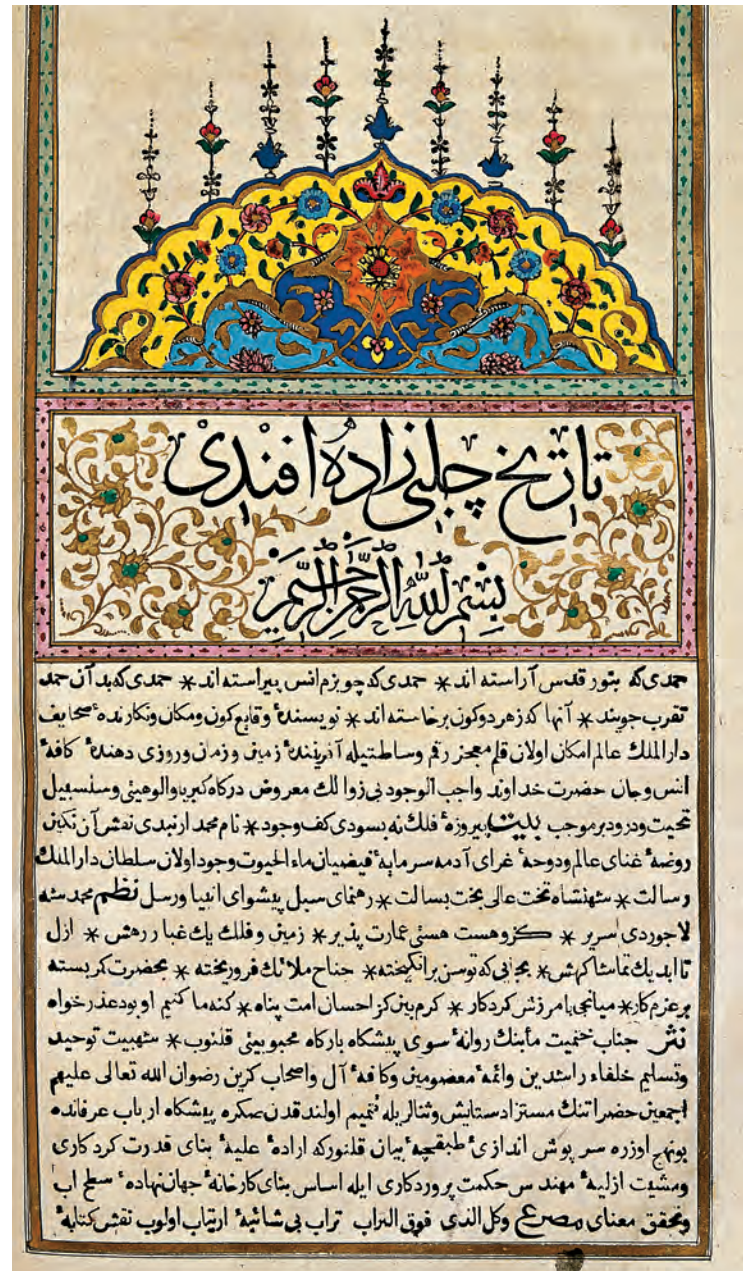 تاریخ چلبی زاده افندی
بسم الله الرحمن الرحیم
حمدی که بنور قدس آراسته اند * حمدی که چو بزم انس پیراسته اند * حمدی که بدآن حمد
تقرب جویند * آنها که زهر دو کون برخاسته اند * نویسندهٔ وقایع کون ومکان ونکارندهٔ صحایف
دار الملك عالم امکان اولان قلم معجز رقم وساطتیله آفرینندهٔ زمین وزمان وروزی دهندهٔ کافهٔ
انس وجان حضرت خداوند واجب الوجود بی زوالك معروض درکاه کبریا والوهیتی وسلسبیل
تحیت ودرود برموجب بیت پیروزهٔ فلك نه بسودی کف وجود * نام محمد ارنبدی نقش آن نکین
روضهٔ غنای عالم ودوحهٔ غرای آدمه سرمایهٔ فیضیان ماء الحیوت وجود اولان سلطان دار الملك
رسالت * شهنشاه تخت عالی بخت بسالت * رهنمای سبل پیشوای انبیا ورسل نظم محمد شه
لاجوردی سریر * کزو هست هستی عمارت پذیر * زمین وفلك یك غبار رهش * ازل
تا ابد یك تماشا کهش * بجایی که توسن برانکیخته * جناح ملائك فروریخته * بحضرت کمر بسته
بر عزم کار * میانجی بامرزش کردکار * کرم بین کز احسان امت پناه * کنه ما کنیم او بود عذرخواه
نثر جناب ختمیت مأبنك روانهٔ سوی پیشکاه بارکاه محبوبیتی قلنوب * شهبیت توحید
وتسلیم خلفاء راشدین وائمهٔ معصومین وکافهٔ آل واصحاب کزین رضوان الله تعالی علیهم
اجمعین حضراتنك مستزاد ستایش وثنالریله تتمیم اولندقدن صکره پیشکاه ارباب عرفانده
بونهج اوزره سرپوش اندازی طبقچهٔ بیان قلنورکه ارادهٔ علیهٔ بنای قدرت کردکاری
ومشیت ازلیهٔ مهندس حکمت پروردکاری ایله اساس بنای کارخانهٔ جهان نهادهٔ سطح اب
وتحقق معنای مصرع وکل الذی فوق التراب تراب بی شائبهٔ ارتیاب اولوب نقش کتابهٔ